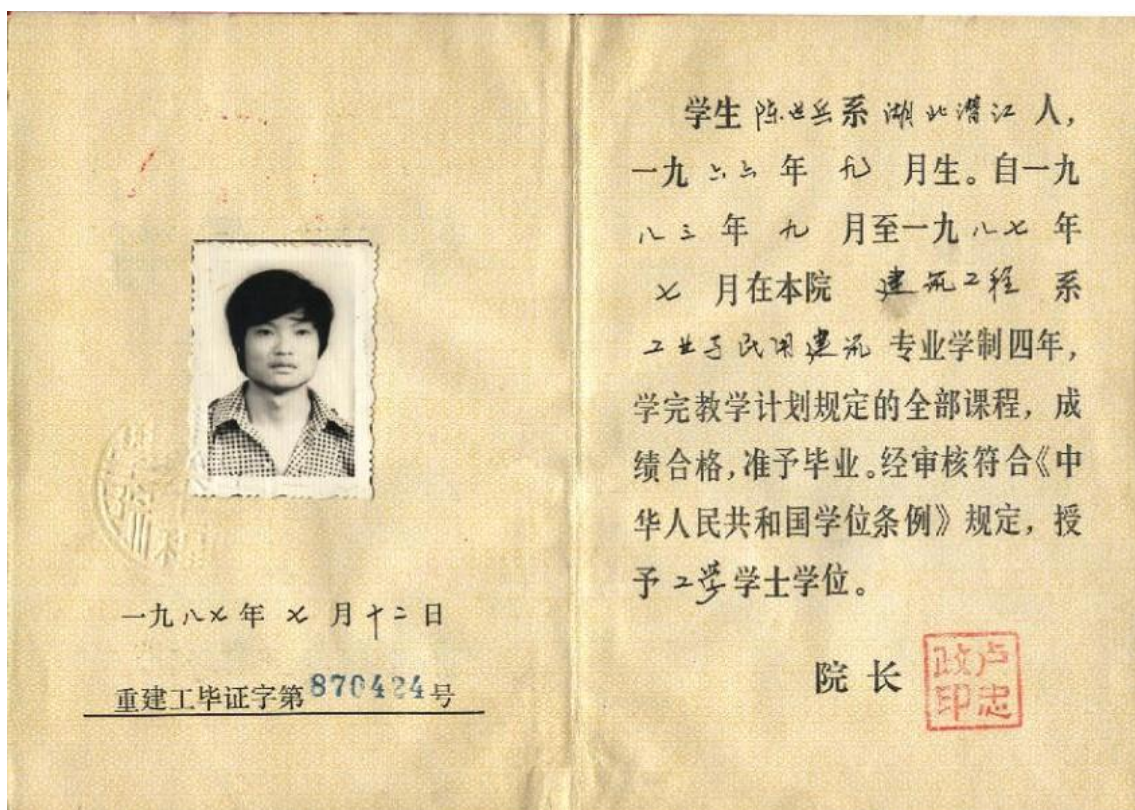 一九八七年七月十二日
重建工毕证字第870424号
学生 陈世岳系 湖北潜江 人,
一九六六年 九 月生。自一九
八三年 九 月至一九八七年
七 月在本院 建筑工程 系
工业与民用建筑 专业学制四年,
学完教学计划规定的全部课程,成
绩合格,准予毕业。经审核符合《中
华人民共和国学位条例》规定,授
予 工学学士学位。
院长
卢忠政印